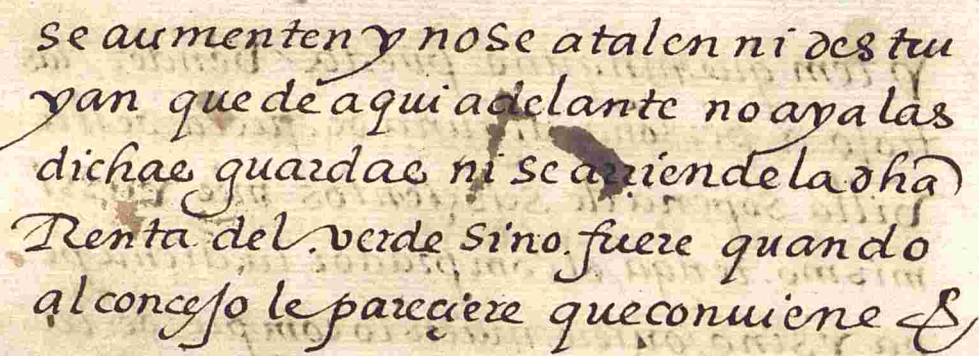 se aumenten y no se atalen ni destru
yan que de aqui adelante no aya las
dichas guardas ni se arriende la dha
Renta del verde sino fuere quando
al concejo le pareçiere que conuiene &